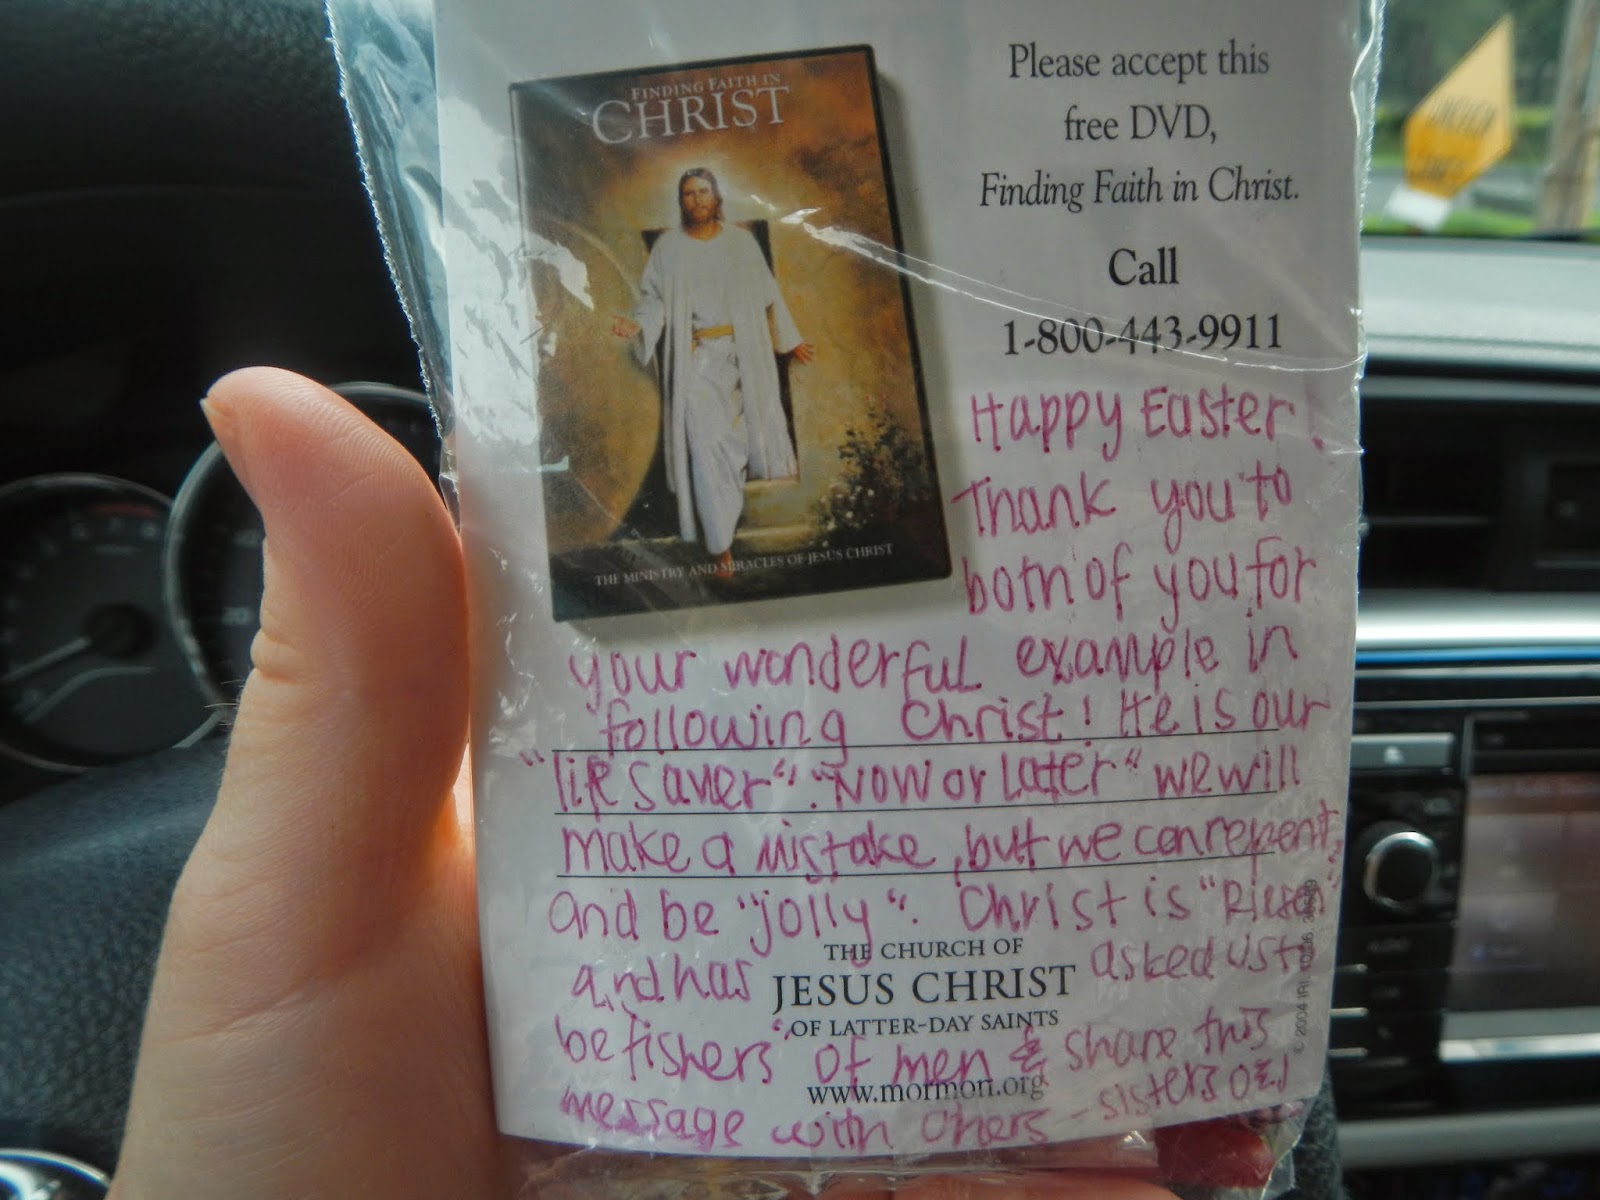 FINDING FAITH IN
CHRIST
THE MINISTRY AND MIRACLES OF JESUS CHRIST
Please accept this
free DVD,
Finding Faith in Christ.
Call
1-800-443-9911
Happy Easter!
Thank you to
both of you for
your wonderful example in
following Christ! He is our
"life saver". "Now or Later" we will
make a mistake, but we can repent
and be "jolly". Christ is "Riesen"
and has asked us to
be "fishers" of men & share this
message with others - sisters
THE CHURCH OF
JESUS CHRIST
OF LATTER-DAY SAINTS
www.mormon.org
© 2004 IRI